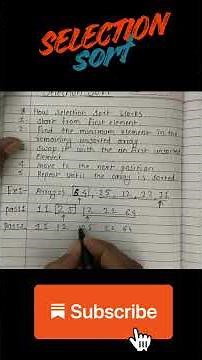 SELECTION
SORT
# How Selection Sort Works
1 Start from first element
2 Find the minimum element in the
remaining unsorted array
3 Swap it with the first unsorted
element
4 Move to the next position
5 Repeat until the array is sorted
Array = 64, 25, 12, 22, 11
pass1 11 25 12 22 64
pass2 11 12 25 22 64
Subscribe